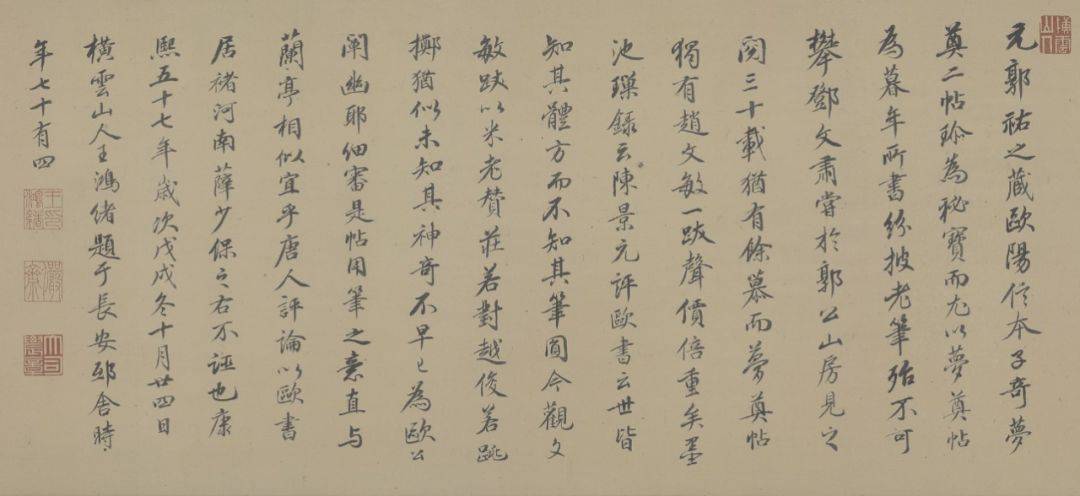 元郭祐之藏歐陽信本子奇夢
奠二帖珍為秘寶而尤以夢奠帖
為暮年所書紛披老筆殆不可
攀鄧文肅嘗於郭公山房見之
閱三十載猶有餘慕而夢奠帖
獨有趙文敏一跋聲價倍重矣墨
池璅錄云陳景元評歐書云世皆
知其體方而不知其筆圓今觀文
敏跋以米老贊莊若對越俊若跳
擲猶似未知其神奇不早已為歐公
闡幽耶細審是帖用筆之意直與
蘭亭相似宜乎唐人評論以歐書
居褚河南薛少保之右不誣也康
熙五十七年歲次戊戌冬十月廿四日
橫雲山人王鴻緒題于長安邸舍時
年七十有四